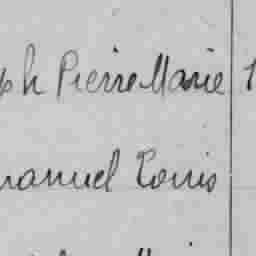 ph Pierre Marie 1
manuel Louis